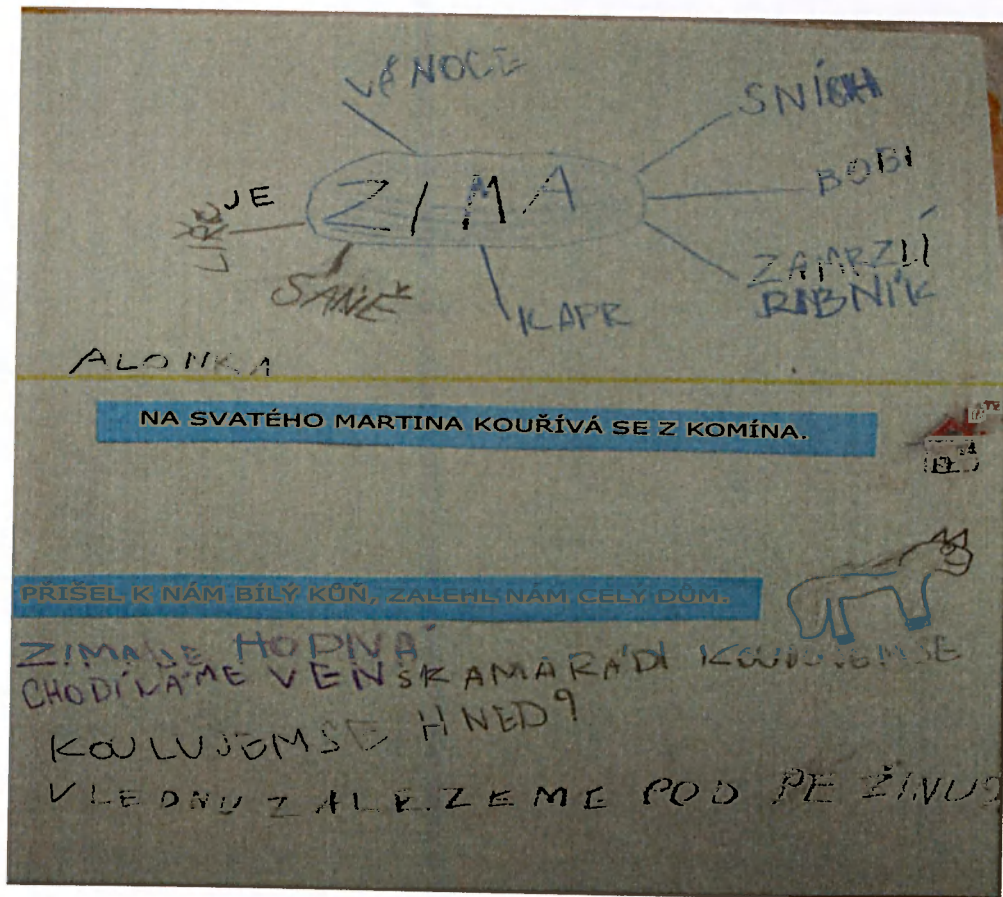 VÁNOCE
SNÍCH
BOBI
JE
ZIMA
ZAMRZLÍ
RIBNÍK
SANĚ
KAPR
NA SVATÉHO MARTINA KOUŘÍVÁ SE Z KOMÍNA.
PŘIŠEL K NÁM BÍLÝ KŮŇ, ZALEHL NÁM CELÝ DŮM.
ZIMA JE HODNÁ
CHODÍVÁME VEN SKAMARÁDI KOULUJEMSE
KOULUJEMSE HNED?
VLEDNU ZALEZEME POD PEŽINU?